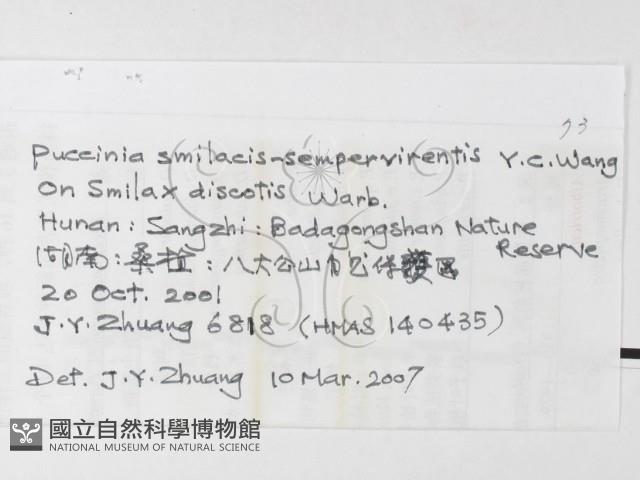 73
Puccinia smilacis-sempervirentis Y.C. Wang
On Smilax discotis Warb.
Hunan: Sangzhi: Badagongshan Nature
Reserve
湖南:桑植:八大公山自然保護区
20 Oct. 2001
J.Y. Zhuang 6818 (HMAS 140435)
Det. J.Y. Zhuang 10 Mar. 2007
國立自然科學博物館
NATIONAL MUSEUM OF NATURAL SCIENCE